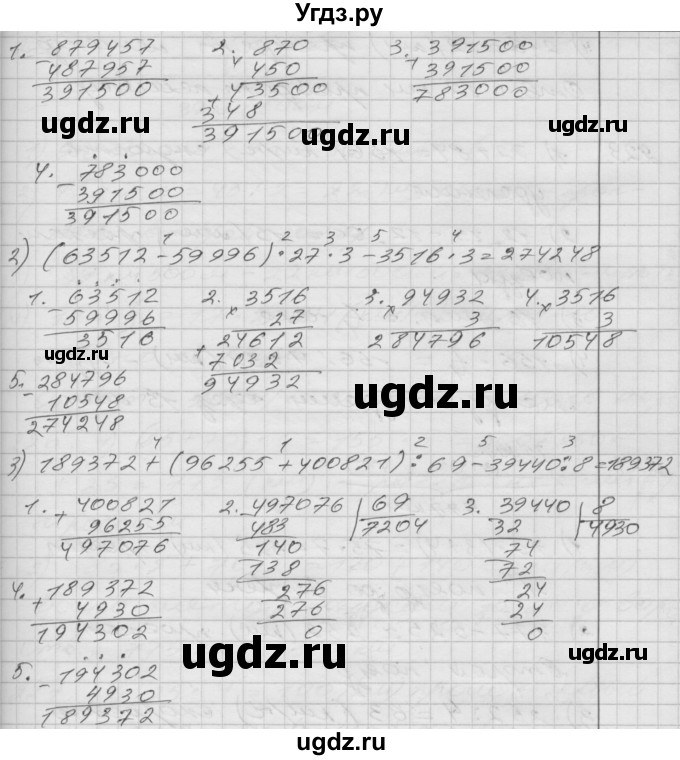 Угдз.ру
1. 879457 2. 870 3. 391500
- 487957 × 450 + 391500
391500 43500 783000
+ 348
391500
ugdz.ru ugdz.ru ugdz.ru
4. 783000
- 391500
391500
ugdz.ru
2) (63512 - 59996) · 27 · 3 - 3516 · 3 = 274248
1 2 3 5 4
1. 63512 2. 3516 3. 94932 4. 3516
- 59996 × 27 × 3 × 3
3516 24612 284796 10548
+ 7032
94932
ugdz.ru ugdz.ru ugdz.ru
5. 284796
- 10548
274248
3) 189372 + (96255 + 400821) : 69 - 39440 : 8 = 189372
4 1 2 5 3
1. 400821 2. 497076 69 3. 39440 8
+ 96255 - 483 7204 - 32 4930
497076 140 74
- 138 - 72
276 24
- 276 - 24
0 0
ugdz.ru ugdz.ru
4. 189372
+ 4930
194302
ugdz.ru ugdz.ru
5. 194302
- 4930
189372
ugdz.ru